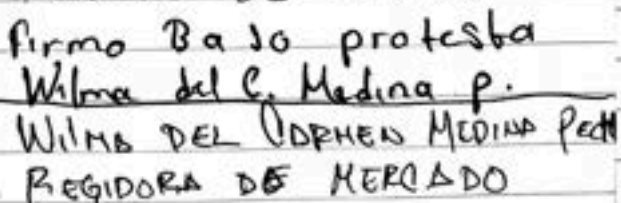 Firmo Bajo protesta
Wilma del C. Medina p.
WilMA DEL CARMEN MEDINA PECH
REGIDORA DE MERCADO